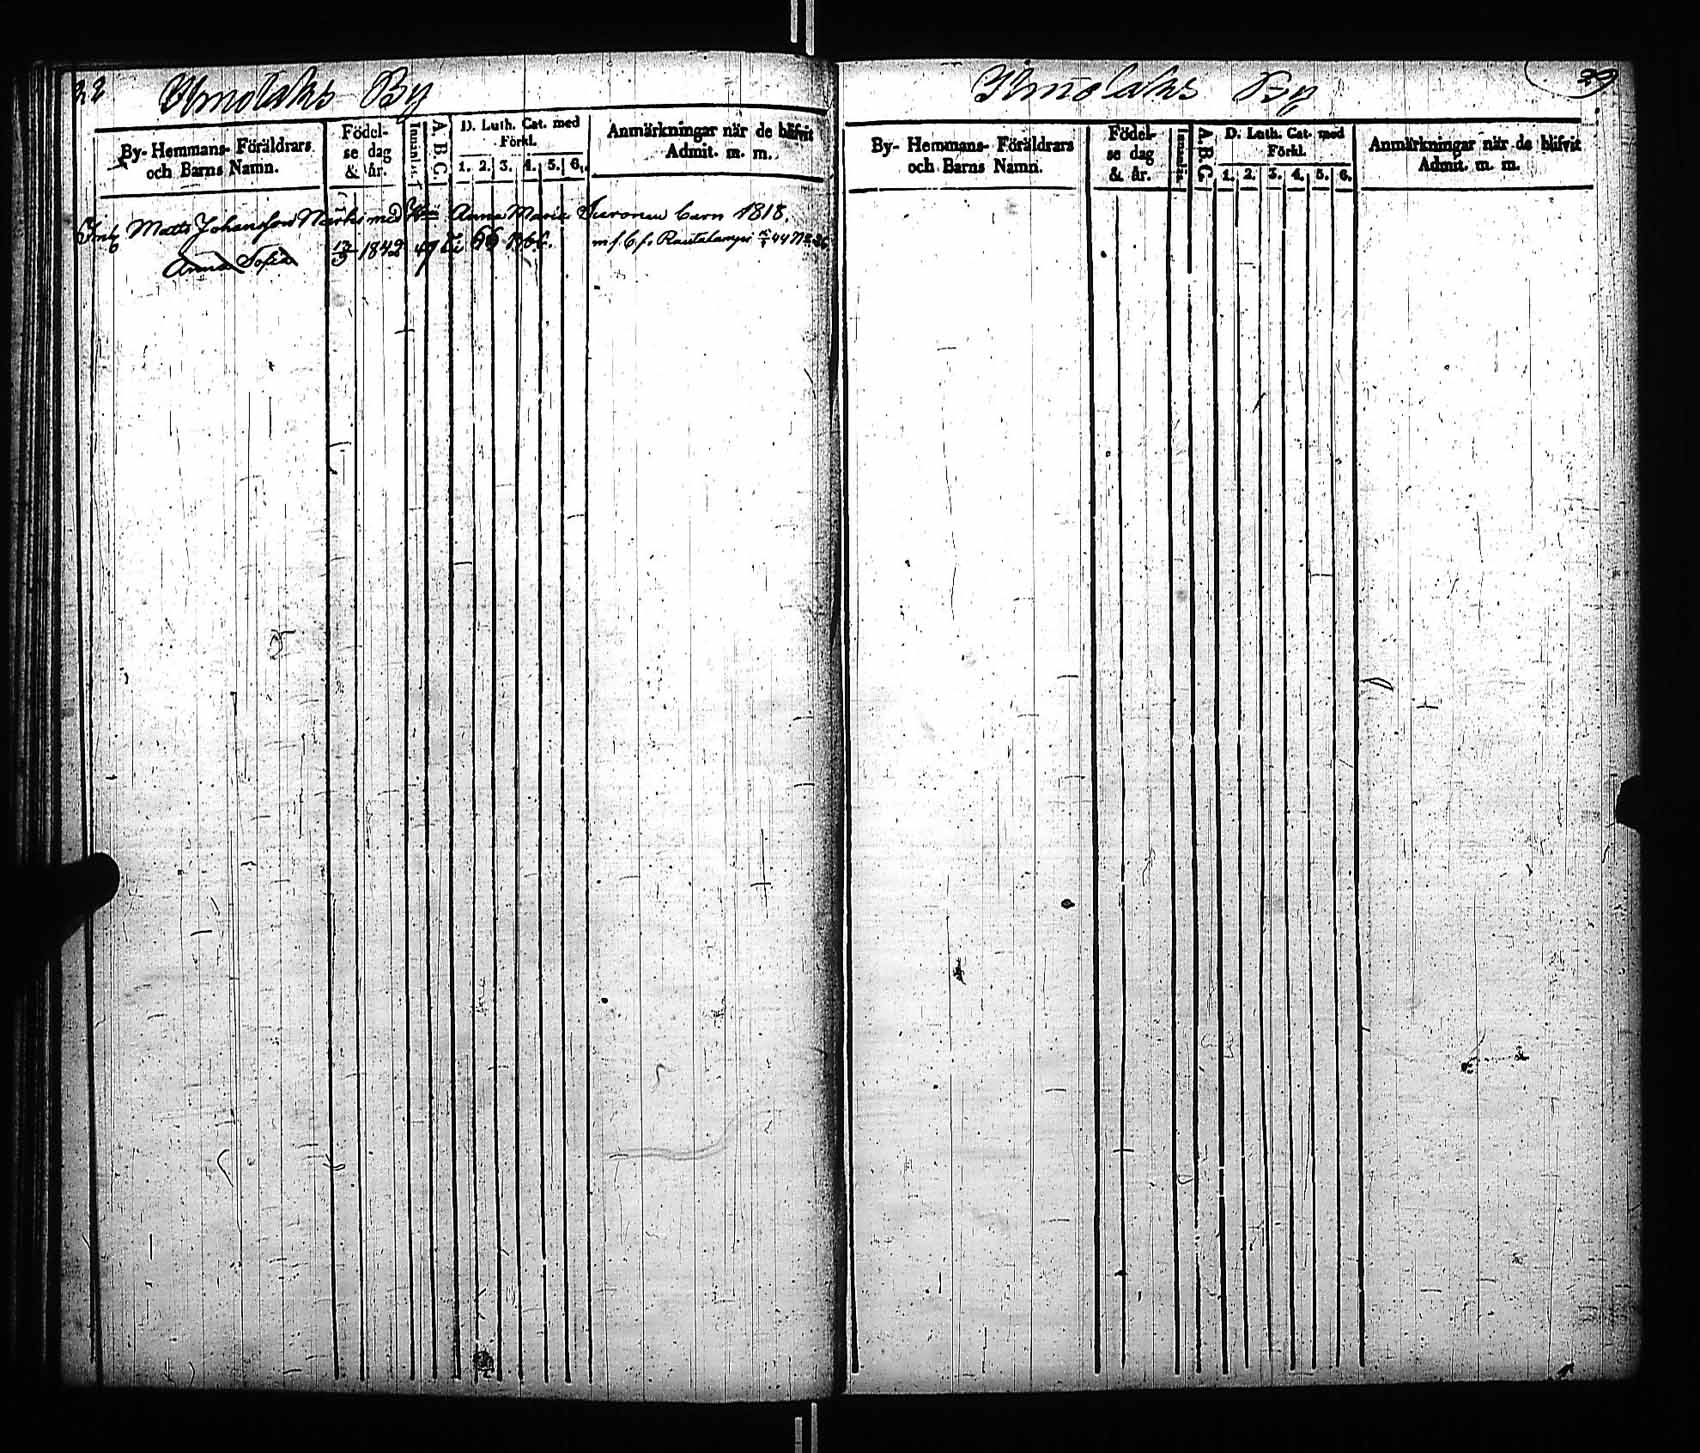 Ilmolaks By
By- Hemmans- Föräldrars och Barns Namn.
Födelse dag & år.
Innanläs.
A. B. C.
D. Luth. Cat. med Förkl.
1. 2. 3. 4. 5. 6.
Anmärkningar när de blifvit Admit. m. m.
Matts Johansson med Anna Maria barn 1818.
Anna Sofia 1842 m f. C. fr Rautalampi 44 N
Ilmolaks By 39
By- Hemmans- Föräldrars och Barns Namn.
Födelse dag & år.
Innanläs.
A. B. C.
D. Luth. Cat. med Förkl.
1. 2. 3. 4. 5. 6.
Anmärkningar när de blifvit Admit. m. m.